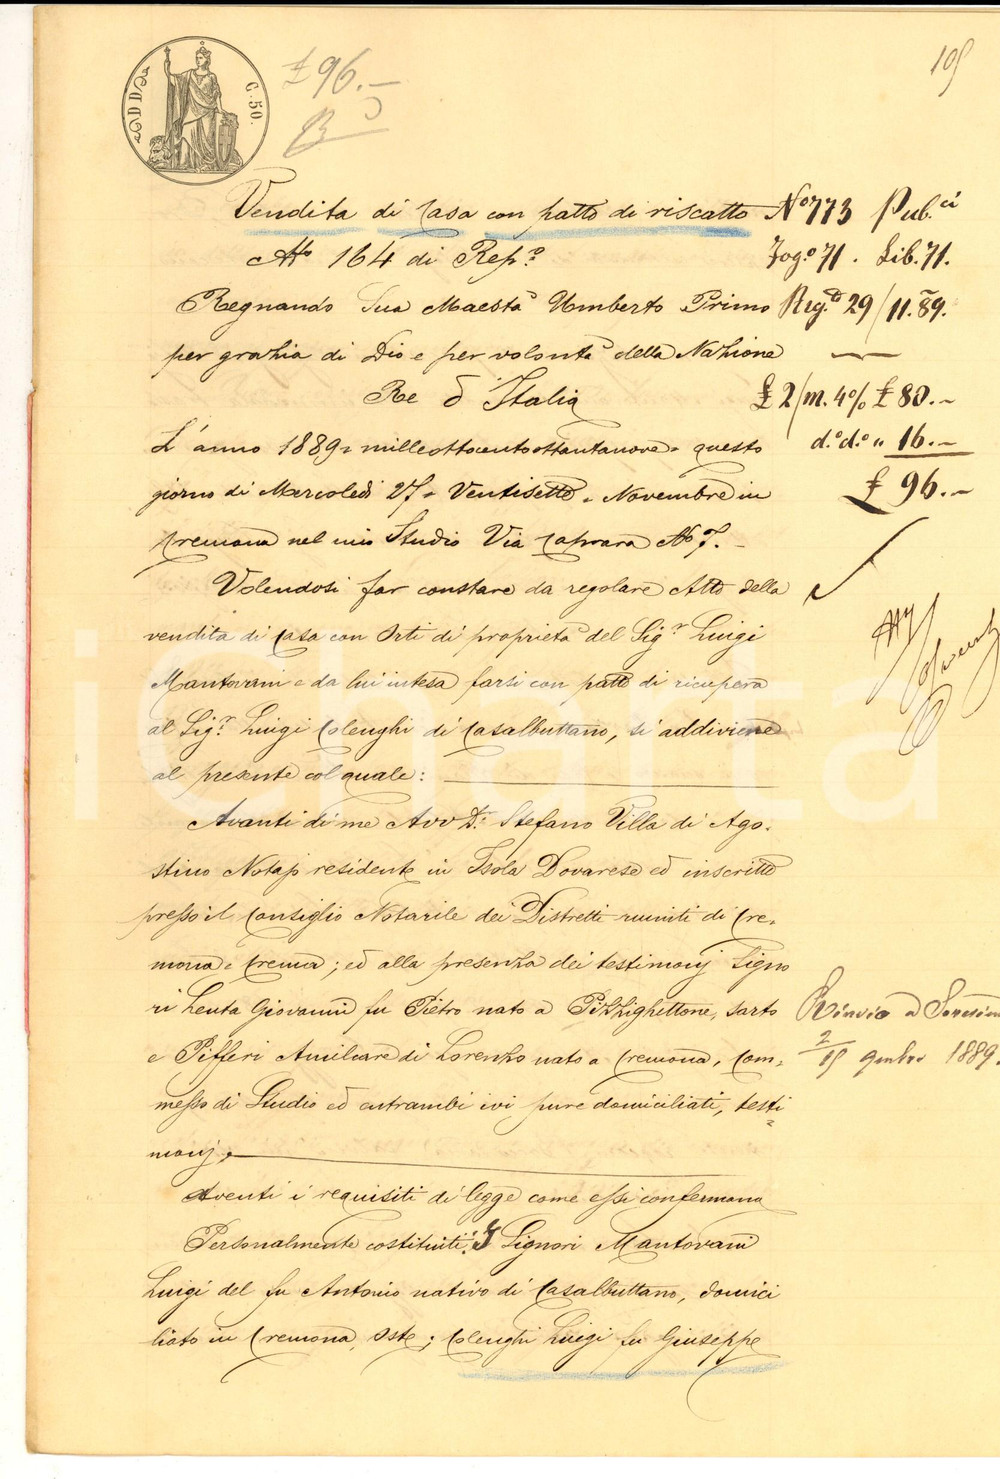 C. 50.
£ 96.-
Vendita di Casa con patto di riscatto
No 164 di Rep.o
Regnando Sua Maestà Umberto Primo
per grazia di Dio e per volontà della Nazione
Re d'Italia
L'anno 1889 = milleottocentottantanove = questo
giorno di Mercoledì 27 = Ventisette = Novembre in
Cremona nel mio Studio Via Caprara No 7. -
Volendosi far constare da regolare Atto della
vendita di Casa con Orti di proprietà del Sig.r Luigi
Mantovani e da lui intesa farsi con patto di ricupera
al Sig.r Luigi Colenghi di Casalbuttano, si addiviene
al presente col quale:
Avanti di me Avv D.r Stefano Villa di Ago-
stino Notajo residente in Isola Dovarese ed inscritto
presso il Consiglio Notarile dei Distretti riuniti di Cre-
mona e Crema; ed alla presenza dei testimonj Signo
ri Giovanni fu Pietro nato a Pizzighettone, sarto
e Pifferi Amilcare di Lorenzo nato a Cremona, Com-
messo di Studio ed entrambi ivi pure domiciliati, testi
monj.
Aventi i requisiti di legge come essi confermano
Personalmente costituiti: I Signori Mantovani
Luigi del fu Antonio nativo di Casalbuttano, domici
liato in Cremona, Oste; Colenghi Luigi fu Giuseppe
No 773 Pub.ci
Fog.o 71. Lib. 71.
Reg.to 29/11. 89.
£ 2/m. 4% £ 80.-
d.o d.o " 16.-
£ 96.-
Rinvio a
1889.